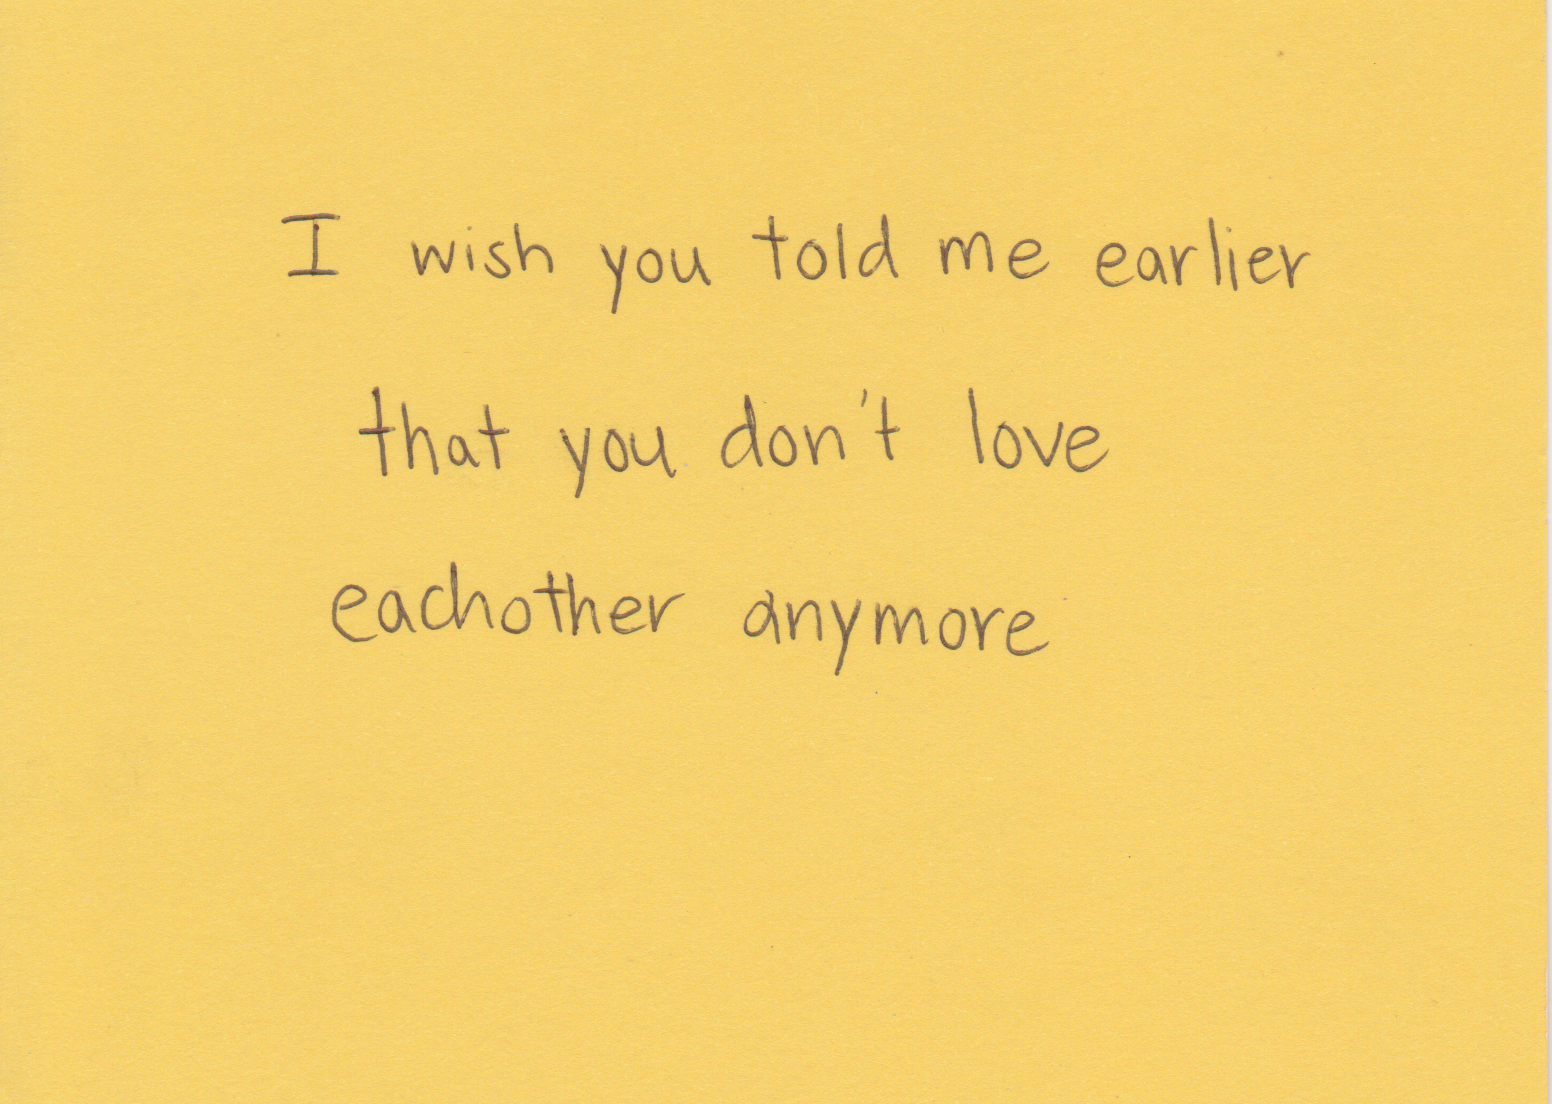 I wish you told me earlier
that you don't love
eachother anymore